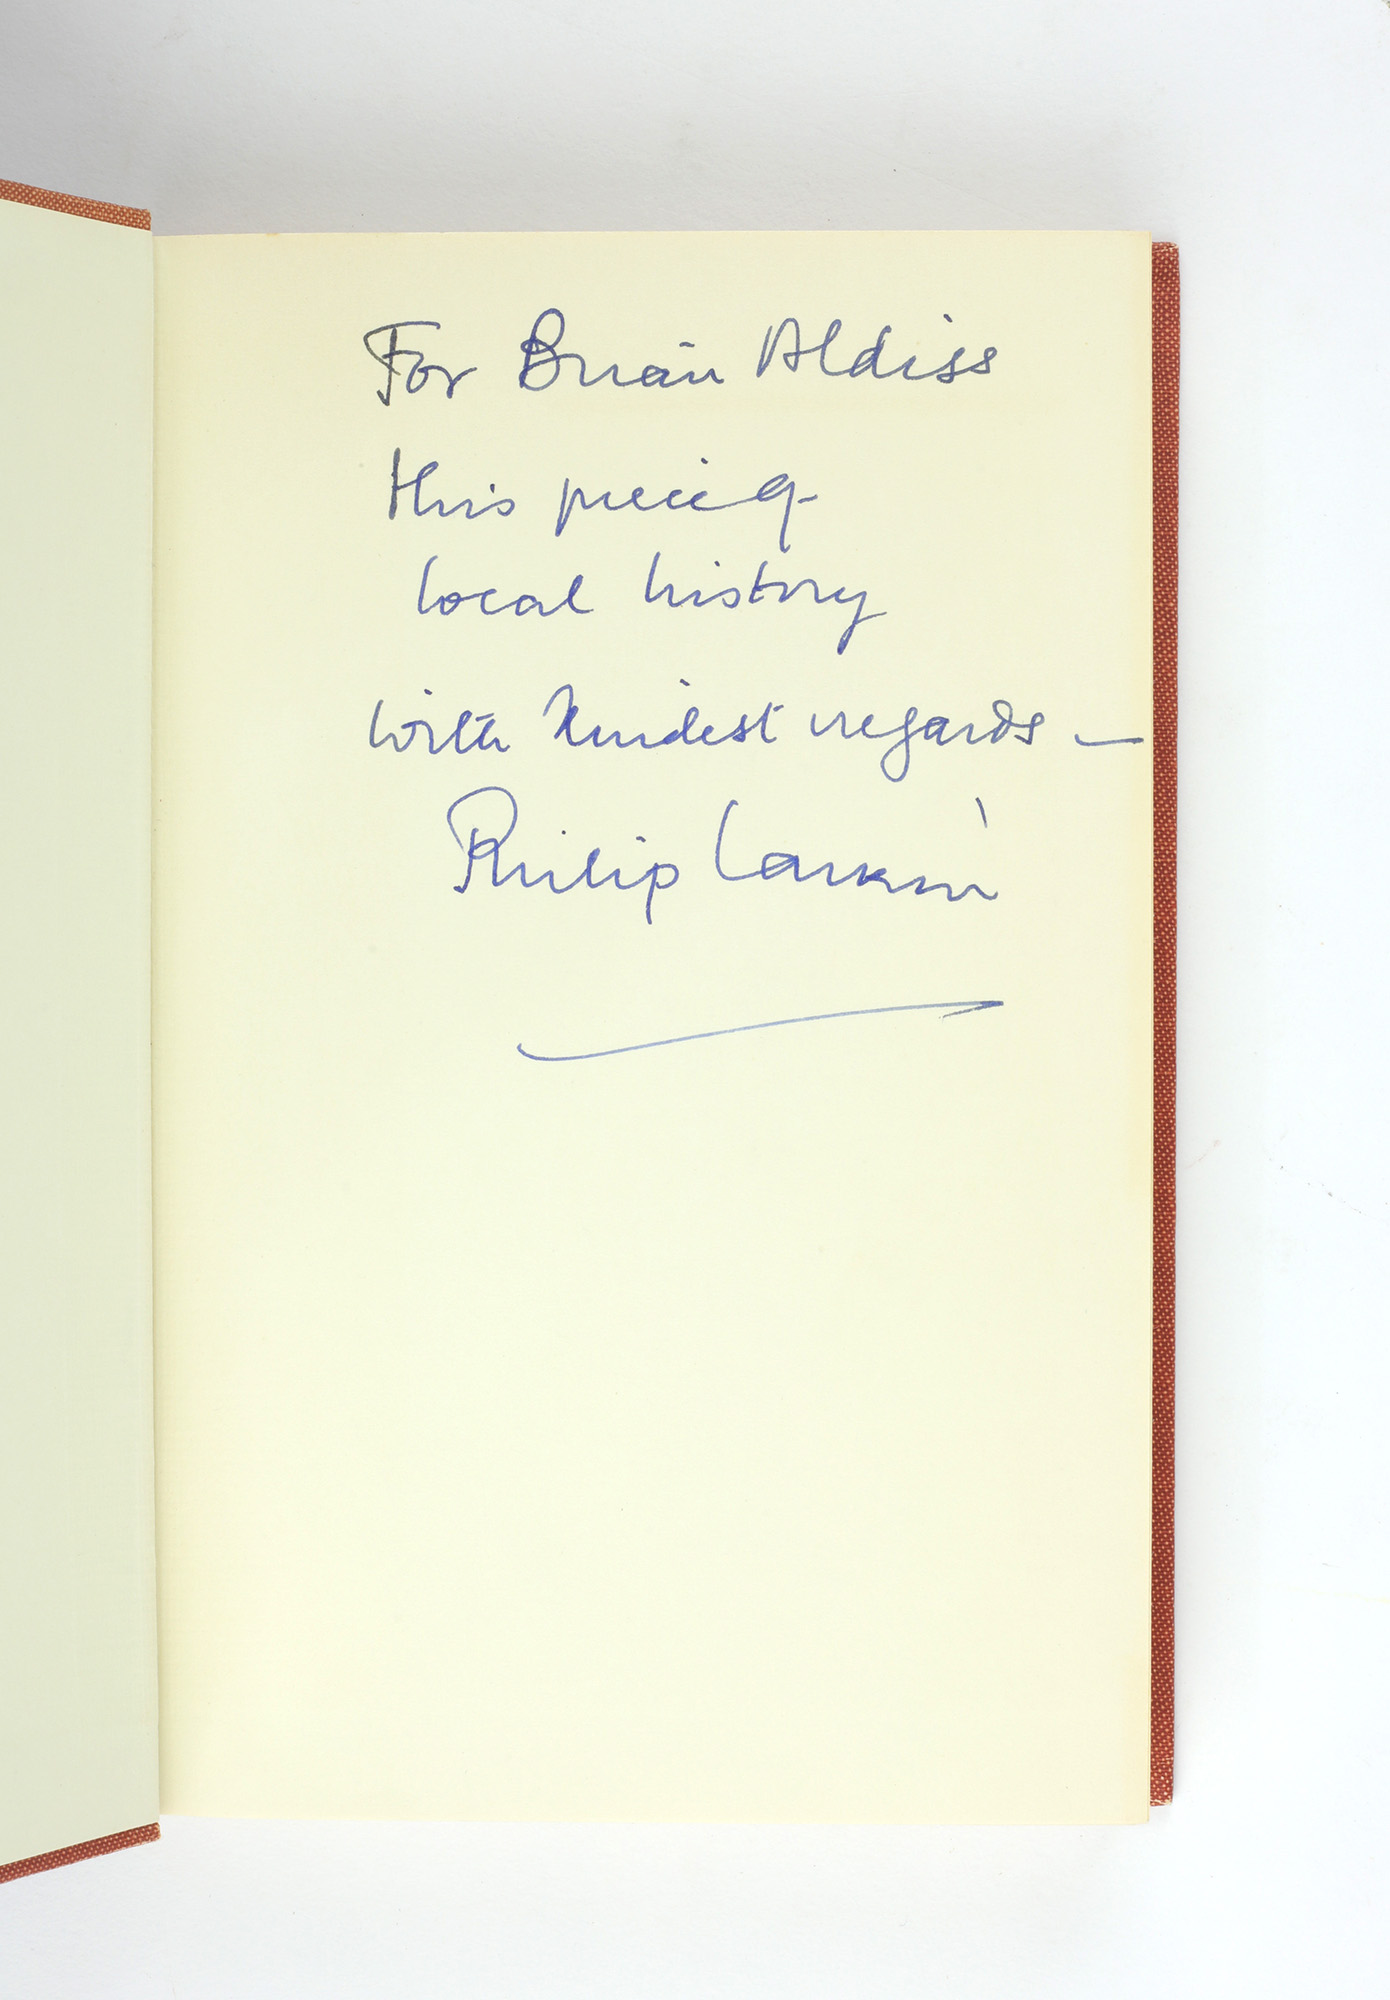 For Brian Aldiss
this piece of
local history
with kindest regards —
Philip Larkin